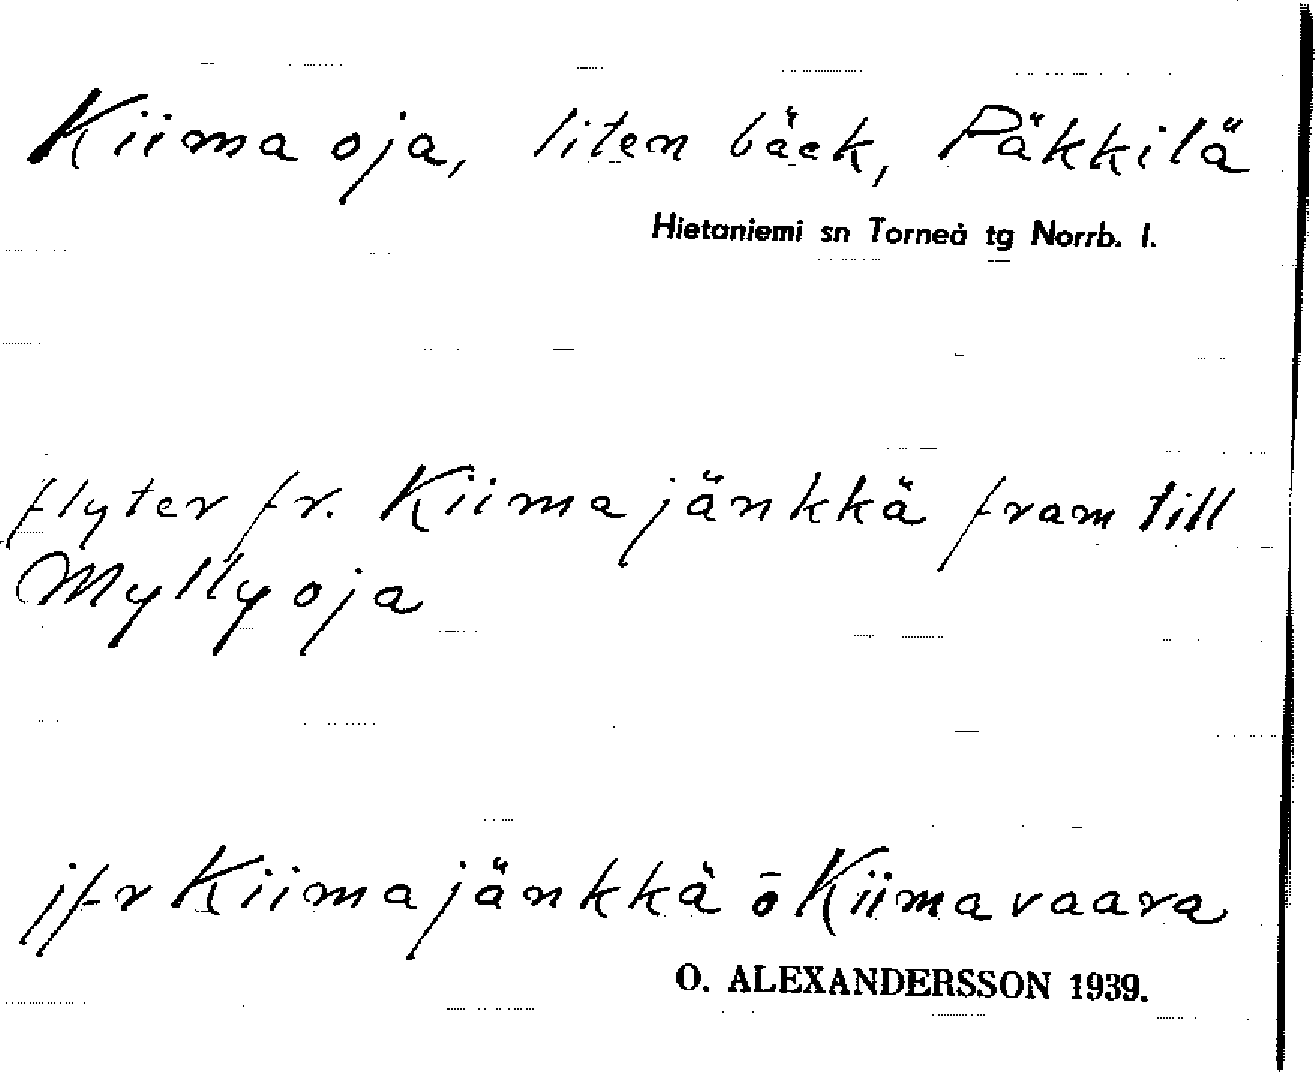 Kiimaoja, liten bäck, Päkkilä
Hietaniemi sn Torneå tg Norrb. l.
flyter fr. Kiimajänkkä fram till
Myllyoja
jfr Kiimajänkkä ō Kiimavaara
O. ALEXANDERSSON 1939.